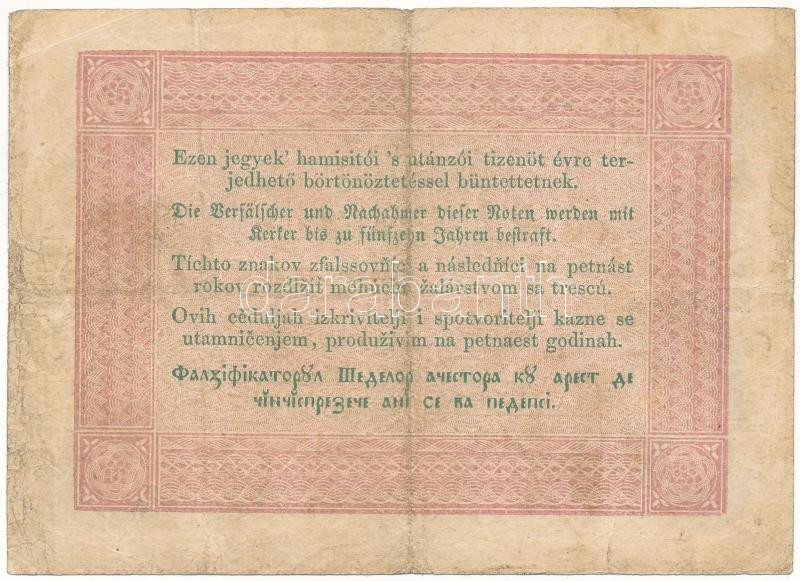 Ezen jegyek' hamisitói 's utánzói tizenöt évre ter-
jedhető börtönöztetéssel büntettetnek.
Die Verfälscher und Nachahmer dieser Noten werden mit
Kerker bis zu fünfzehn Jahren bestraft.
Tíchto znakov zfalssovňíci a následňíci na petnást
rokov rozdlžiť mohúcím žalárstvom sa trescú.
Ovih cěduljah izkrivitelji i spotvoritelji kazne se
utamničenjem, produživim na petnaest godinah.
Фалꙁіфікаторȣл Шеделор ачестора кȣ арест де
чінчіспреꙁече ані се ва педепсі.
darabanth